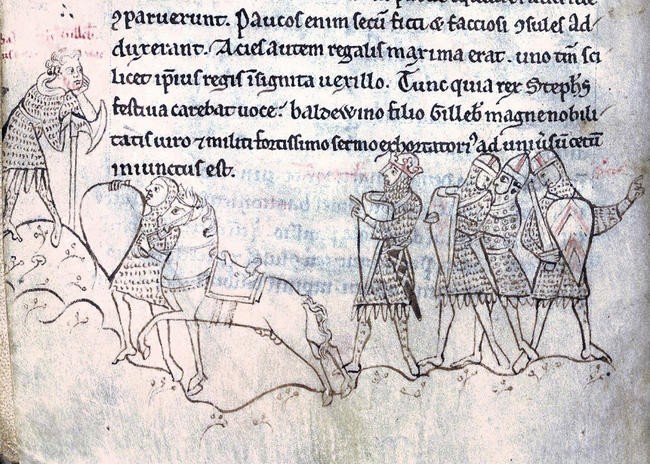 ꝯparuerunt. Paucos enim secū ficti & factiosi ꝯsules ad
duxerant. Acies autem regalis maxima erat. uno tm̄ sci
licet ip̄ius regis īsignita uexillo. Tunc quia rex Stephs
festiua carebat uoce: baldewino filio Gilleb̄ magne nobili
tatis uiro ⁊ militi fortissimo sermo exhortatori᷒ ad uniū᷒sū cetū
iniunctus est.